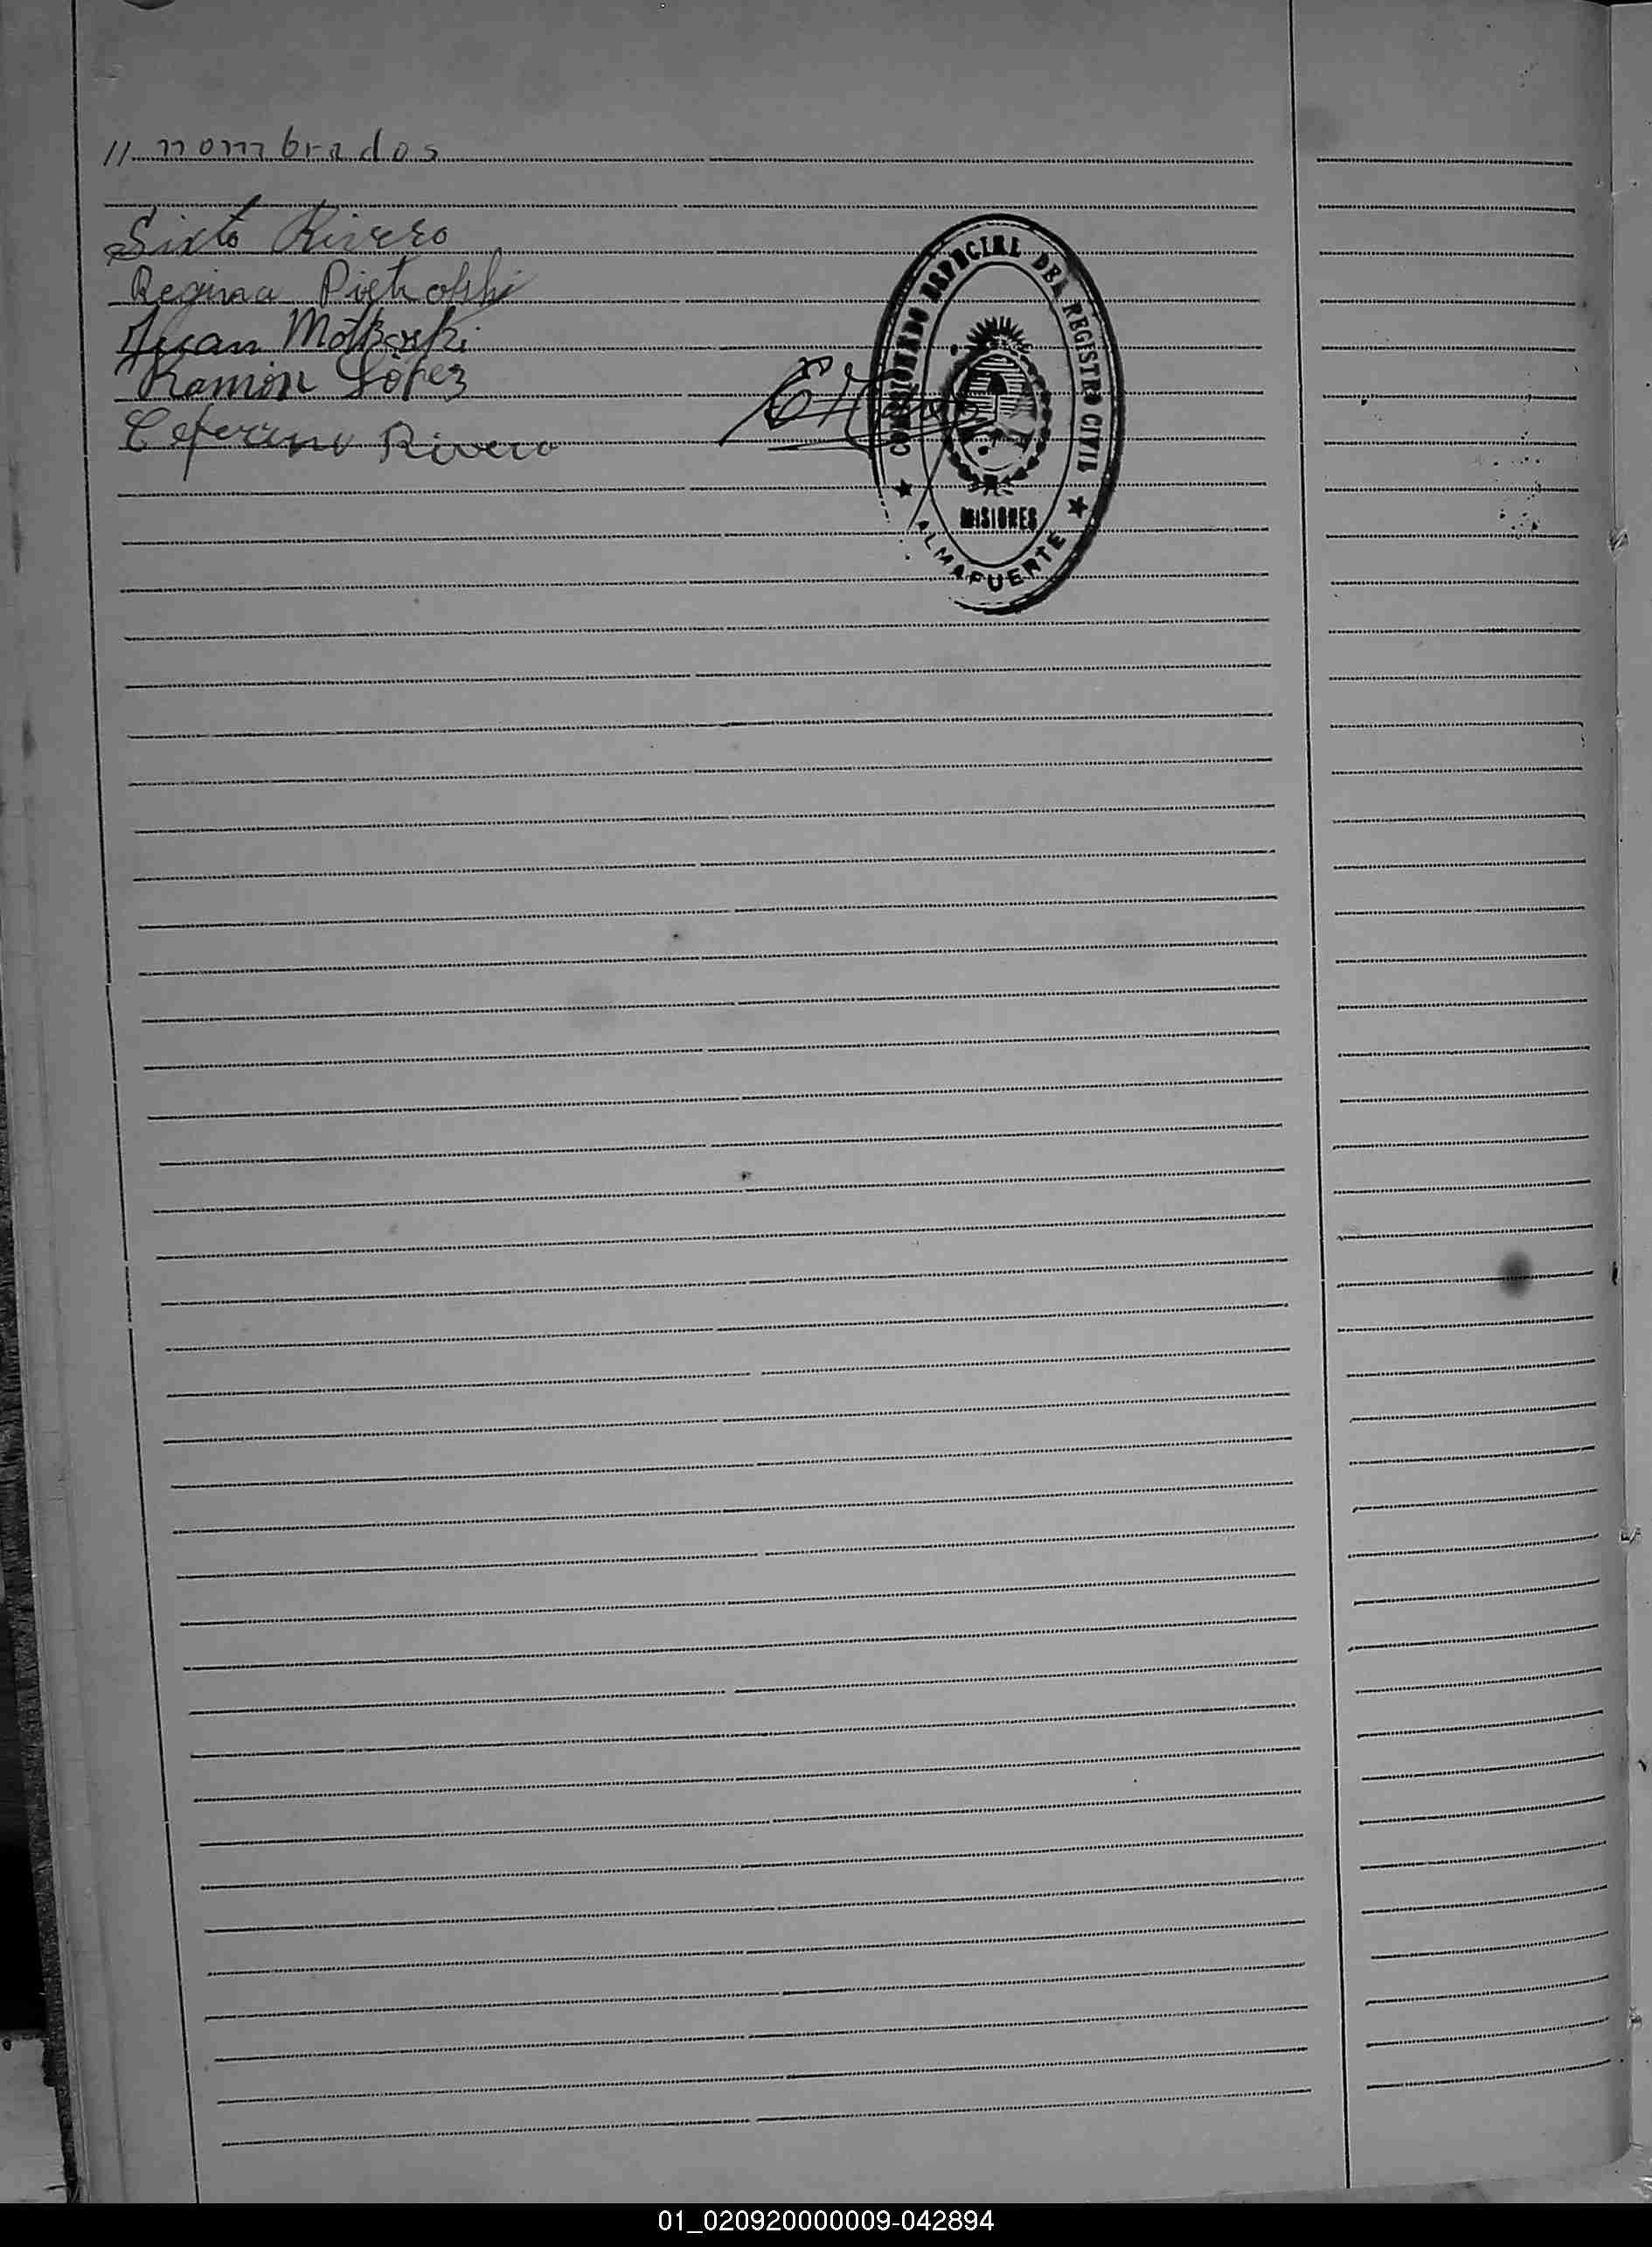 // nombrados
Sixto Rivero
Regina Pietroski
Juan Motkoski
Ramón López
Ceferino Rivero
COMISIONADO ESPECIAL DEL REGISTRO CIVIL
MISIONES
ALMAFUERTE
01_020920000009-042894